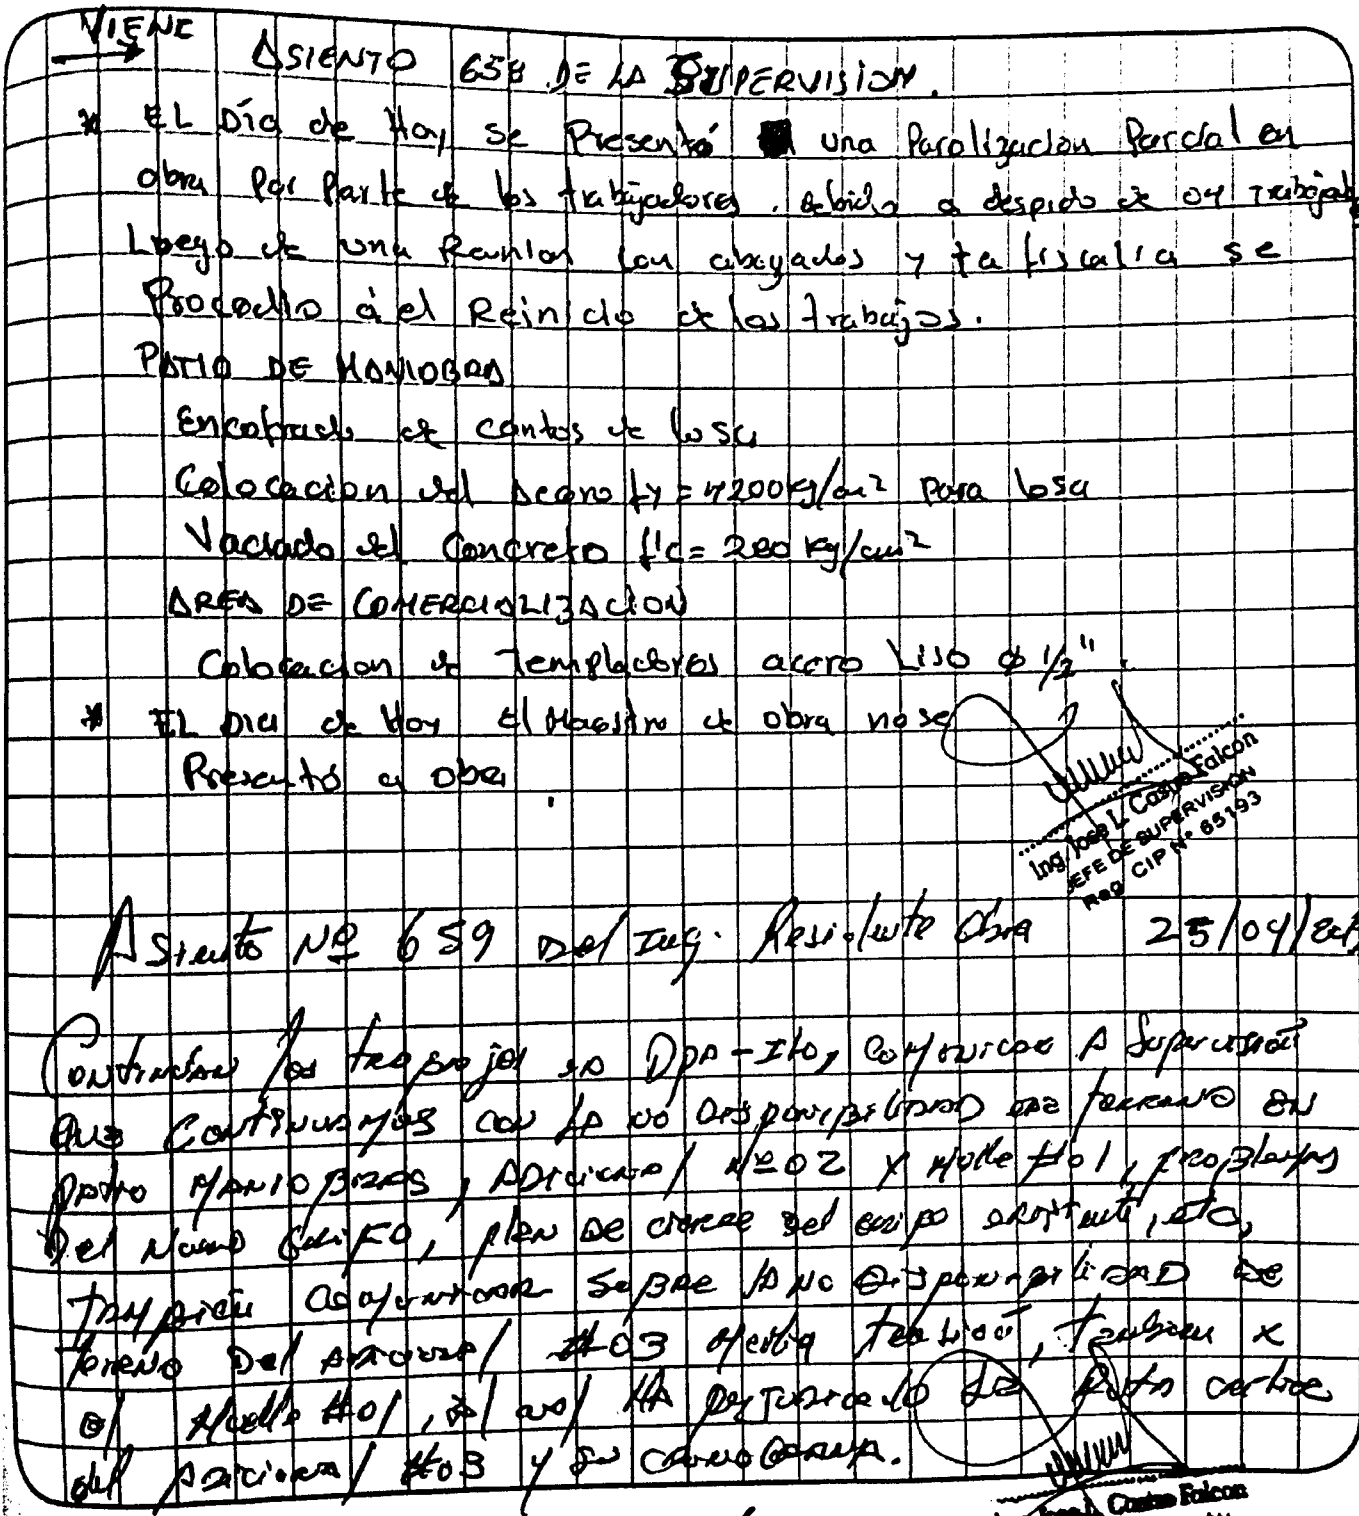 VIENE
ASIENTO 658 DE LA SUPERVISION.
* EL Día de Hoy se Presentó una Paralización Parcial en
obra Por Parte de los trabajadores. debido a despido de 04 trabajad
Luego de una Reunion con abogados y la fiscalia se
Procedio a el Reinicio de los trabajos.
PATIO DE MANIOBRA
Encofrado de cantos de losa
Colocacion del Acero fy=4200kg/cm² para losa
Vaciado del Concreto f'c= 280 kg/cm²
AREA DE COMERCIALIZACION
Colocacion de Templadores acero Liso φ 1/2".
* EL Dia de Hoy El Maestro de obra no se
Presentó a obra.
Ing. Jose L. Castro Falcon
JEFE DE SUPERVISION
Reg CIP Nº 65193
Asiento Nº 659 Del Ing. Residente Obra 25/04/
Continúan los trabajos en DPA-Ilo, comunicar A Supervisión
que Continuamos con la no disponibilidad del terreno en
patio Maniobras, Adicional Nº02 y Muelle #01, problemas
Del Nuevo Grifo, plan de cierre del equipo existente, etc,
también comunicar sobre la no disponibilidad de
terreno Del Adicional #03 también x
el Muelle #01, el cual HA perjudicado la Ruta critica
del Adicional #03 y su cronograma.
Castro Falcon